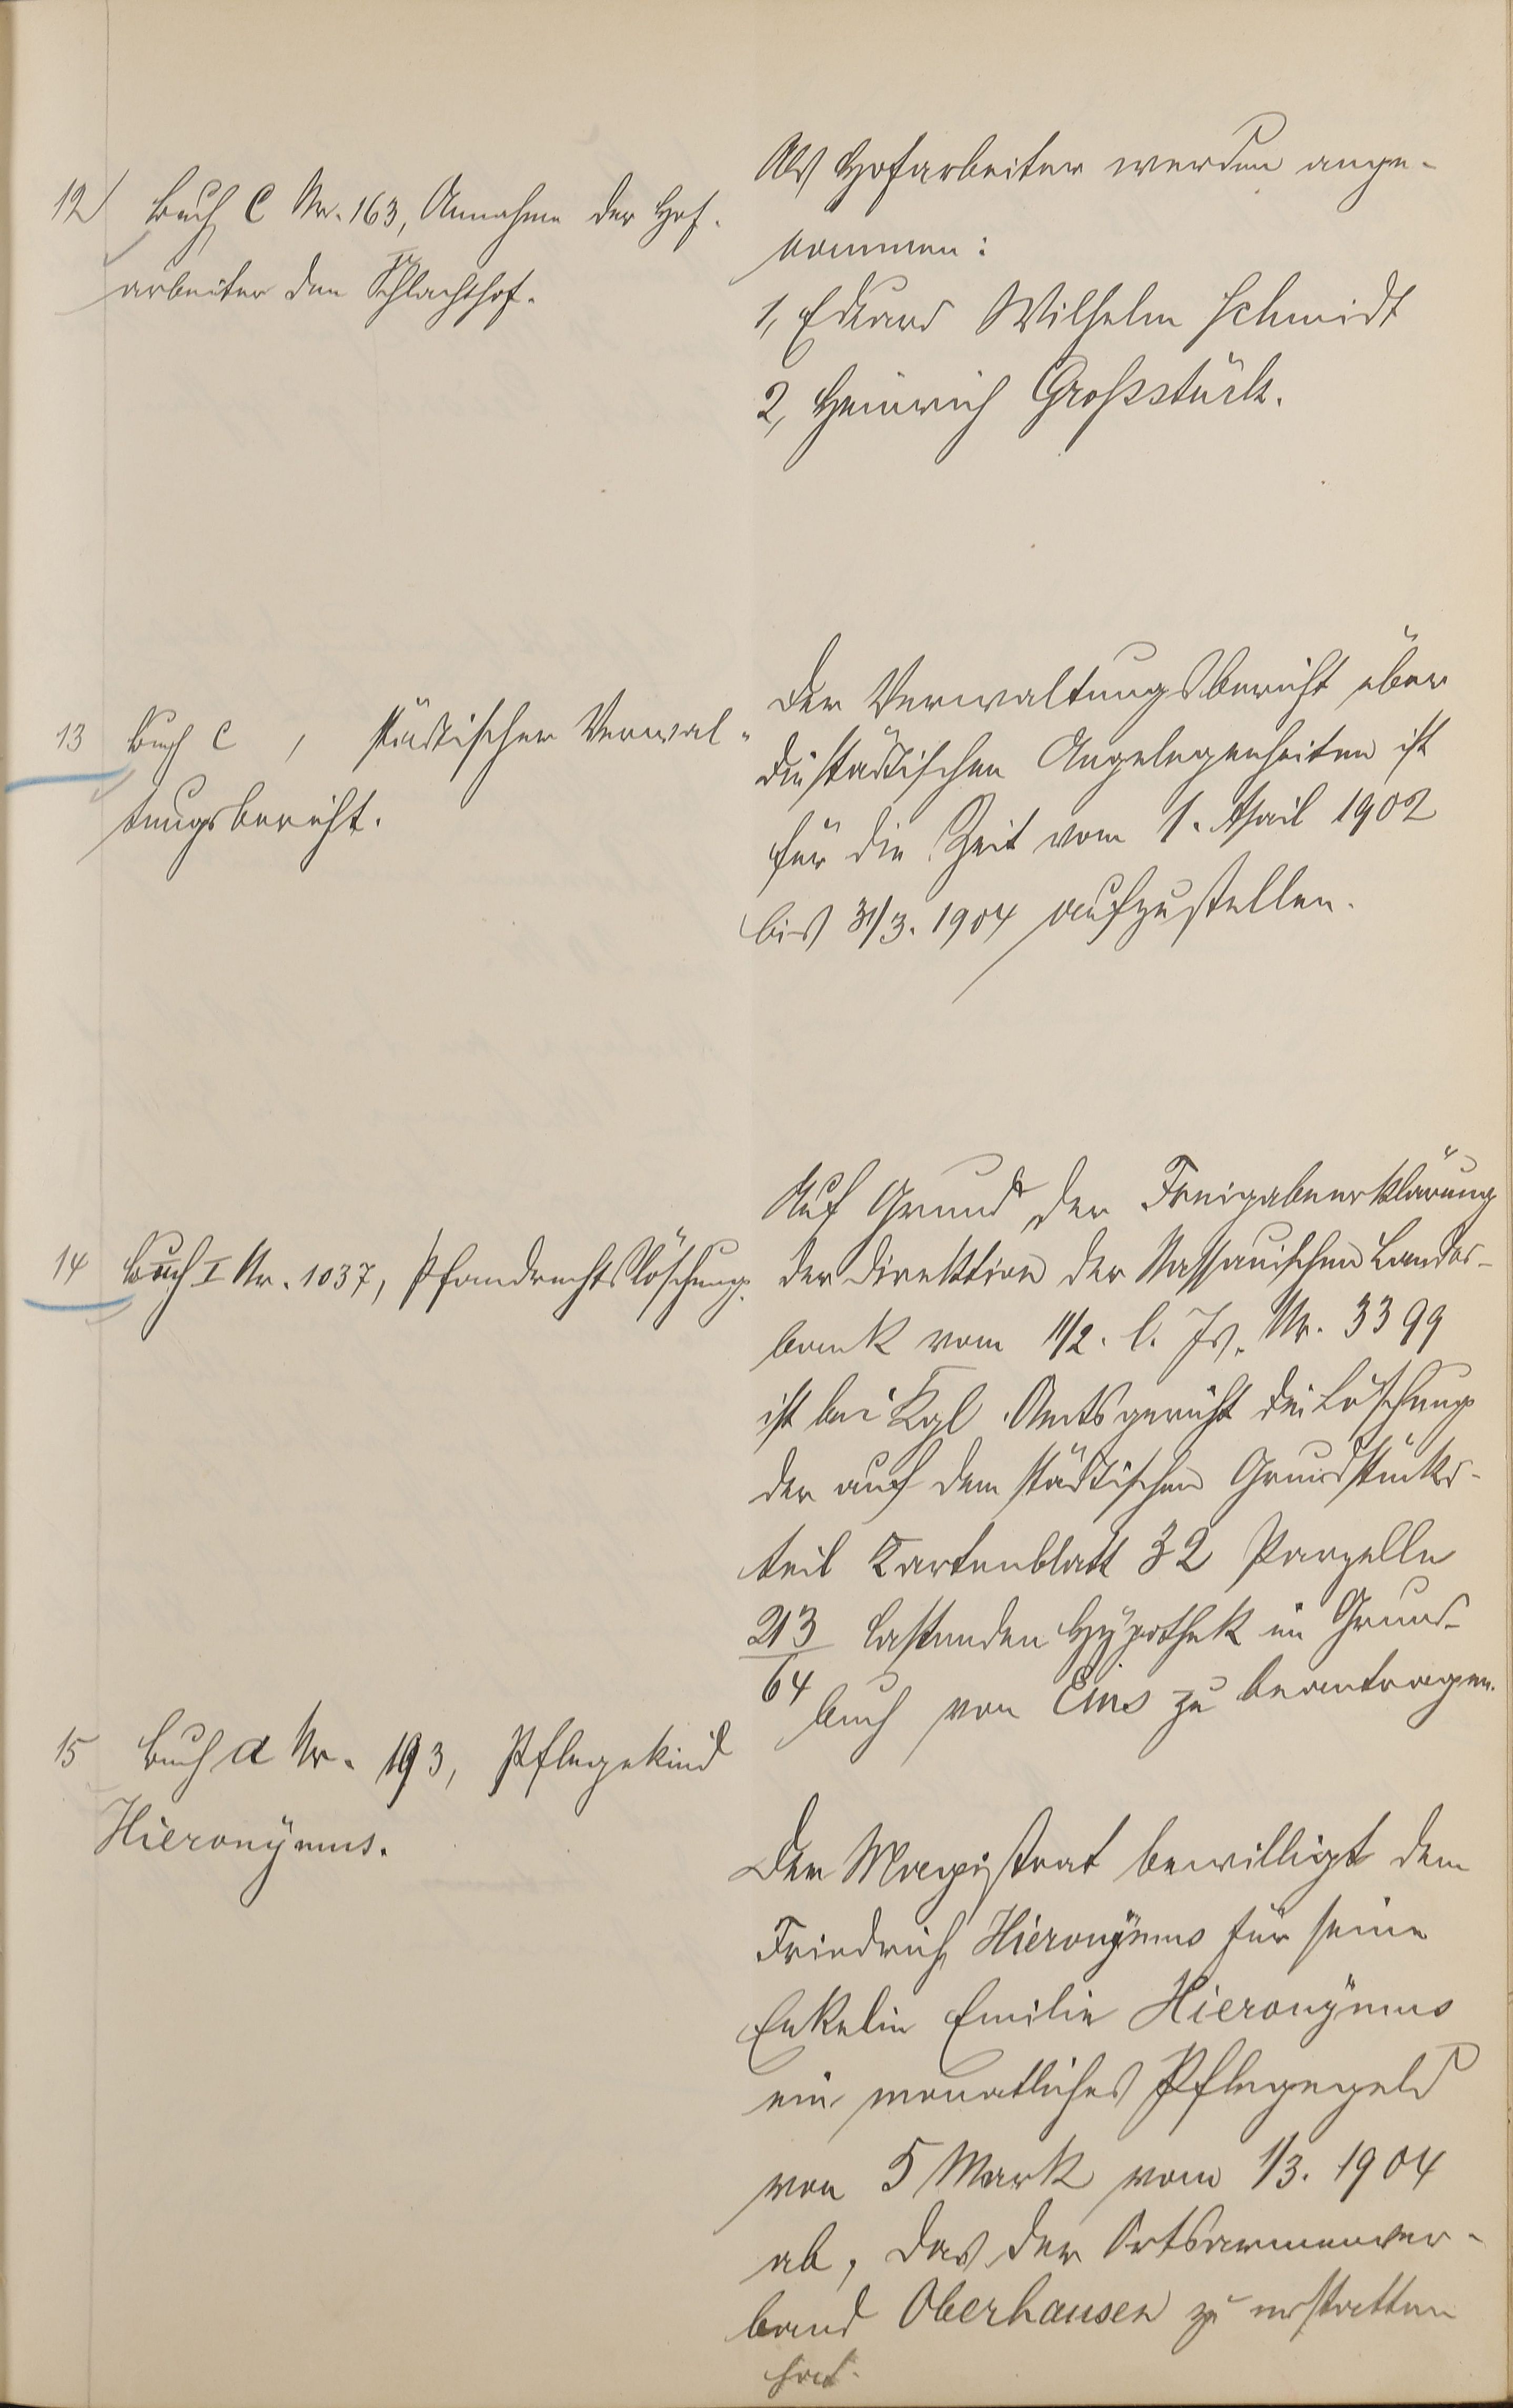 12) Buch C Nr. 163, Annahme der Hof-
arbeiter den Schlachthof.
Als Hofarbeiter werden ange-
nommen:
1, Eduard Wilhelm Schmidt
2, Heinrich Großstück.
13 Buch C , städtischer Verwal-
tungsbericht.
Der Verwaltungsbericht über
die städtischen Angelegenheiten ist
für die Zeit vom 1. April 1902
bis 31/3. 1904 aufzustellen.
14 Buch I Nr. 1037, Pfandrechtslöschung.
Auf Grund der Freigabeerklärung
der Direktion der Nassauischen Landes-
bank vom 11/2. l. Js. Nr. 3399
ist bei Kgl. Amtsgericht die Löschung
der auf dem städtischen Grundstücks-
teil Kartenblatt 32 Parzelle
213/64 lastenden Hypothek im Grund-
buch von Ems zu beantragen.
15 Buch a Nr. 193, Pflegekind
Hieronymus.
Der Magistrat bewilligt dem
Friedrich Hieronymus für seine
Enkelin Emilie Hieronymus
ein monatliches Pflegegeld
von 5 Mark vom 1/3. 1904
ab, das der Ortsarmenver-
band Oberhausen zu erstatten
hat.